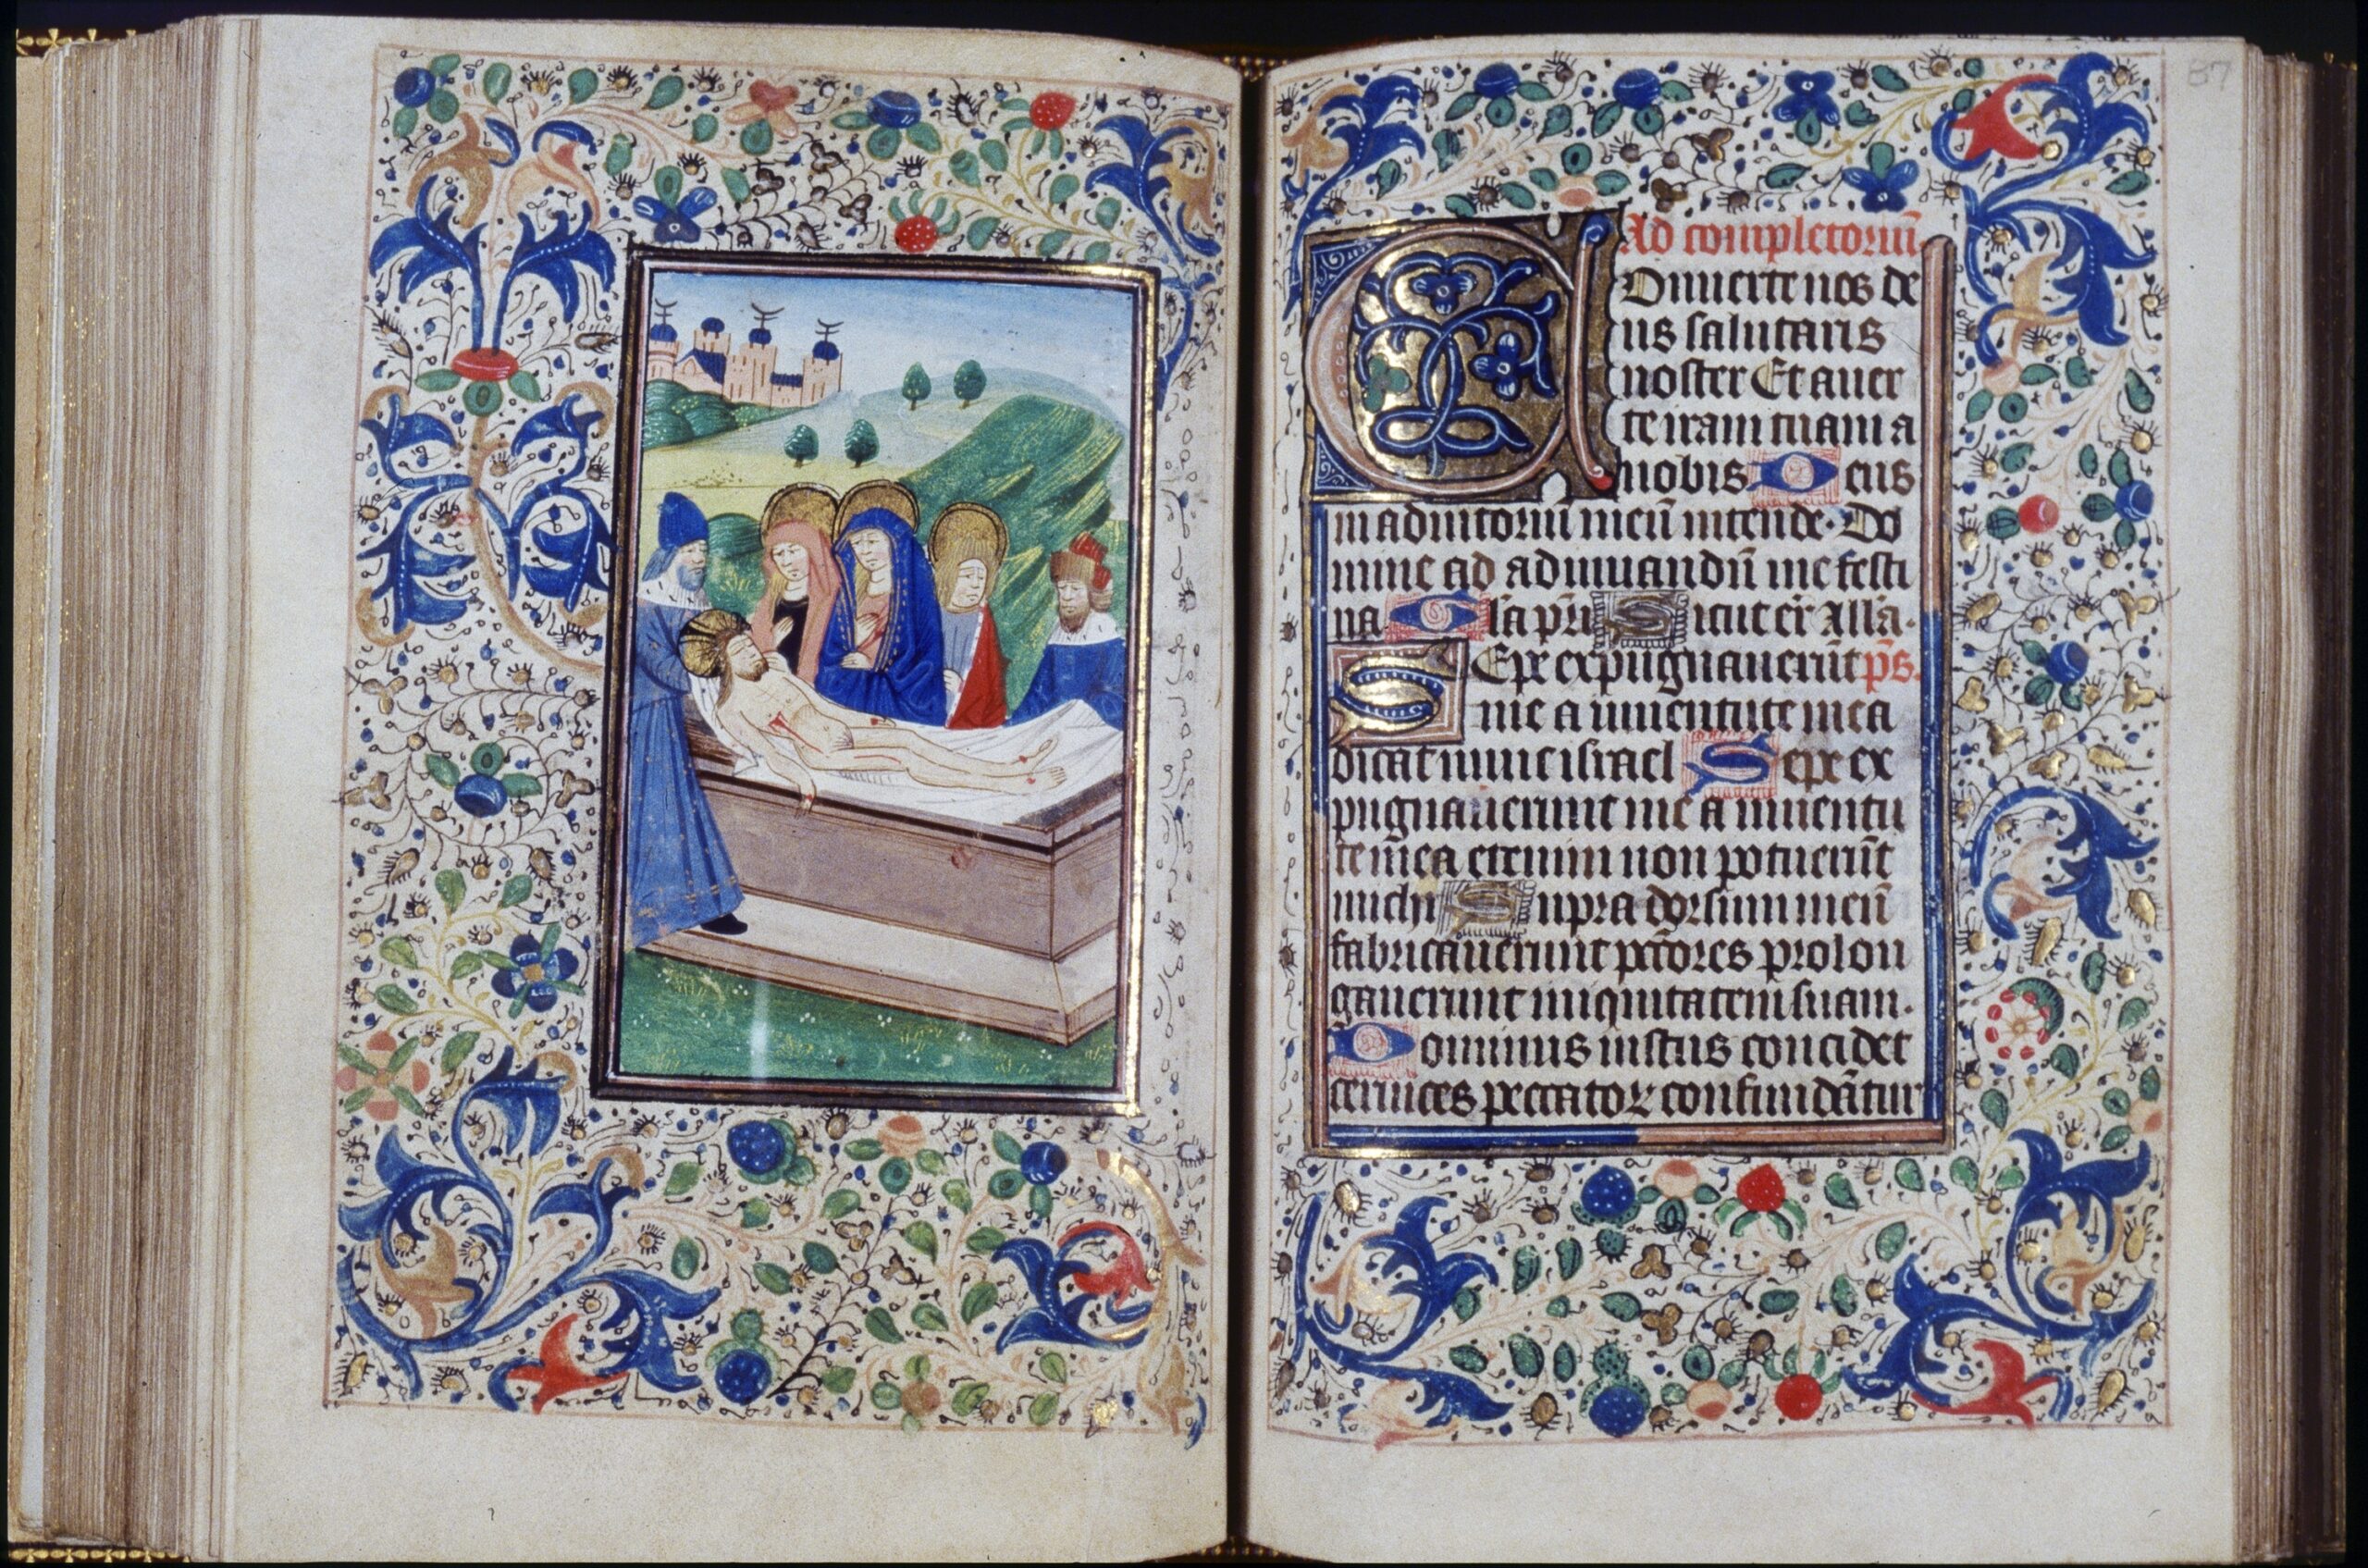 87
Ad completoriū.
Conuerte nos de
us salutaris
noster Et auer
te iram tuam a
nobis Deus
in adiutoriū meū intende. Do
mine ad adiuuandū me festi
na. Gl̃a pr̃i Sicut er̃ All̃a.
Sepe expugnauerūt p̃s.
me a iuuentute mea
dicat nunc israel Sepe ex
pugnauerunt me a iuuentu
te mea etenim non potuerūt
michi Supra dorsum meū
fabricauerunt pc̃tores prolon
gauerunt iniquitatem suam.
Dominus iustus concidet
ceruices peccatoꝝ confundātur